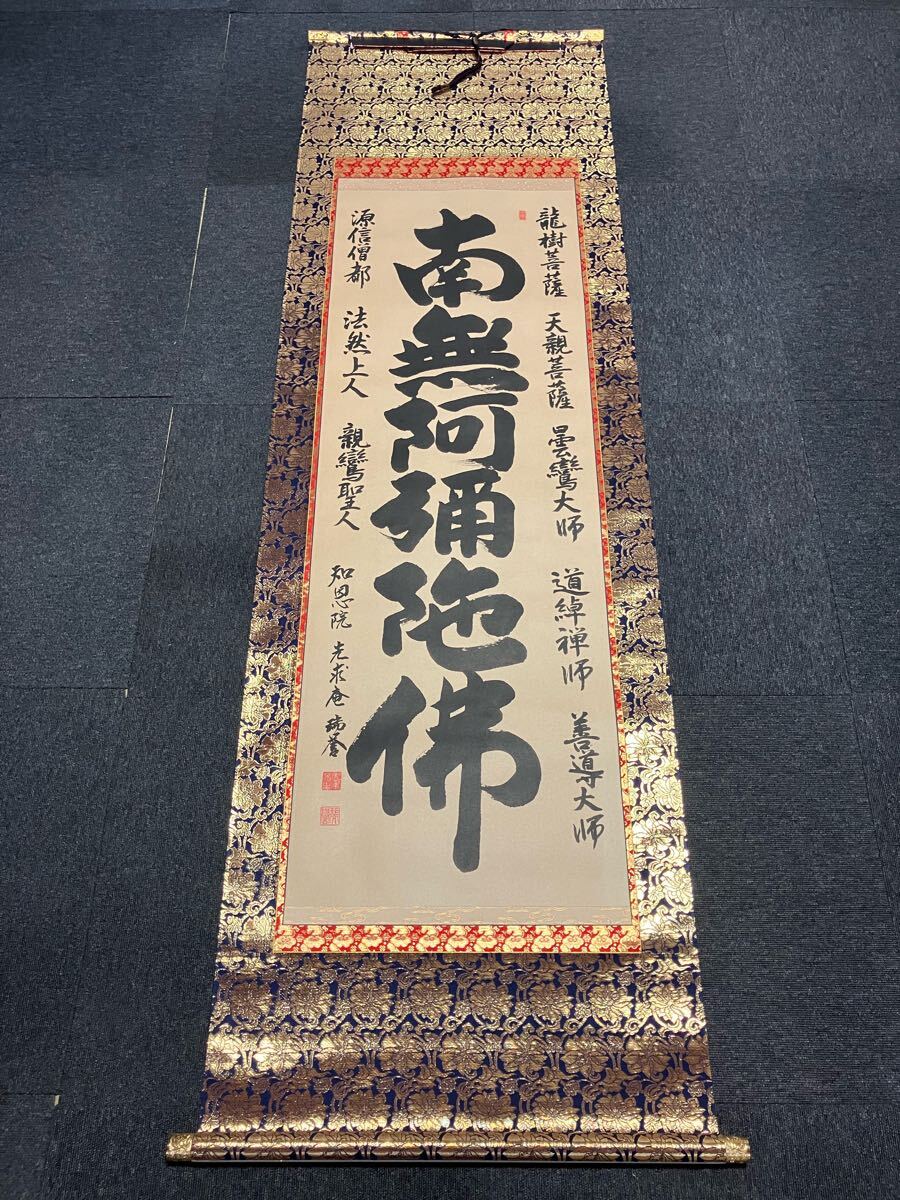 龍樹菩薩 天親菩薩 曇鸞大师 道綽禅师 善導大师
南無阿彌陀佛
源信僧都 法然上人 親鸞聖人 知恩院 光求庵 瑞誉